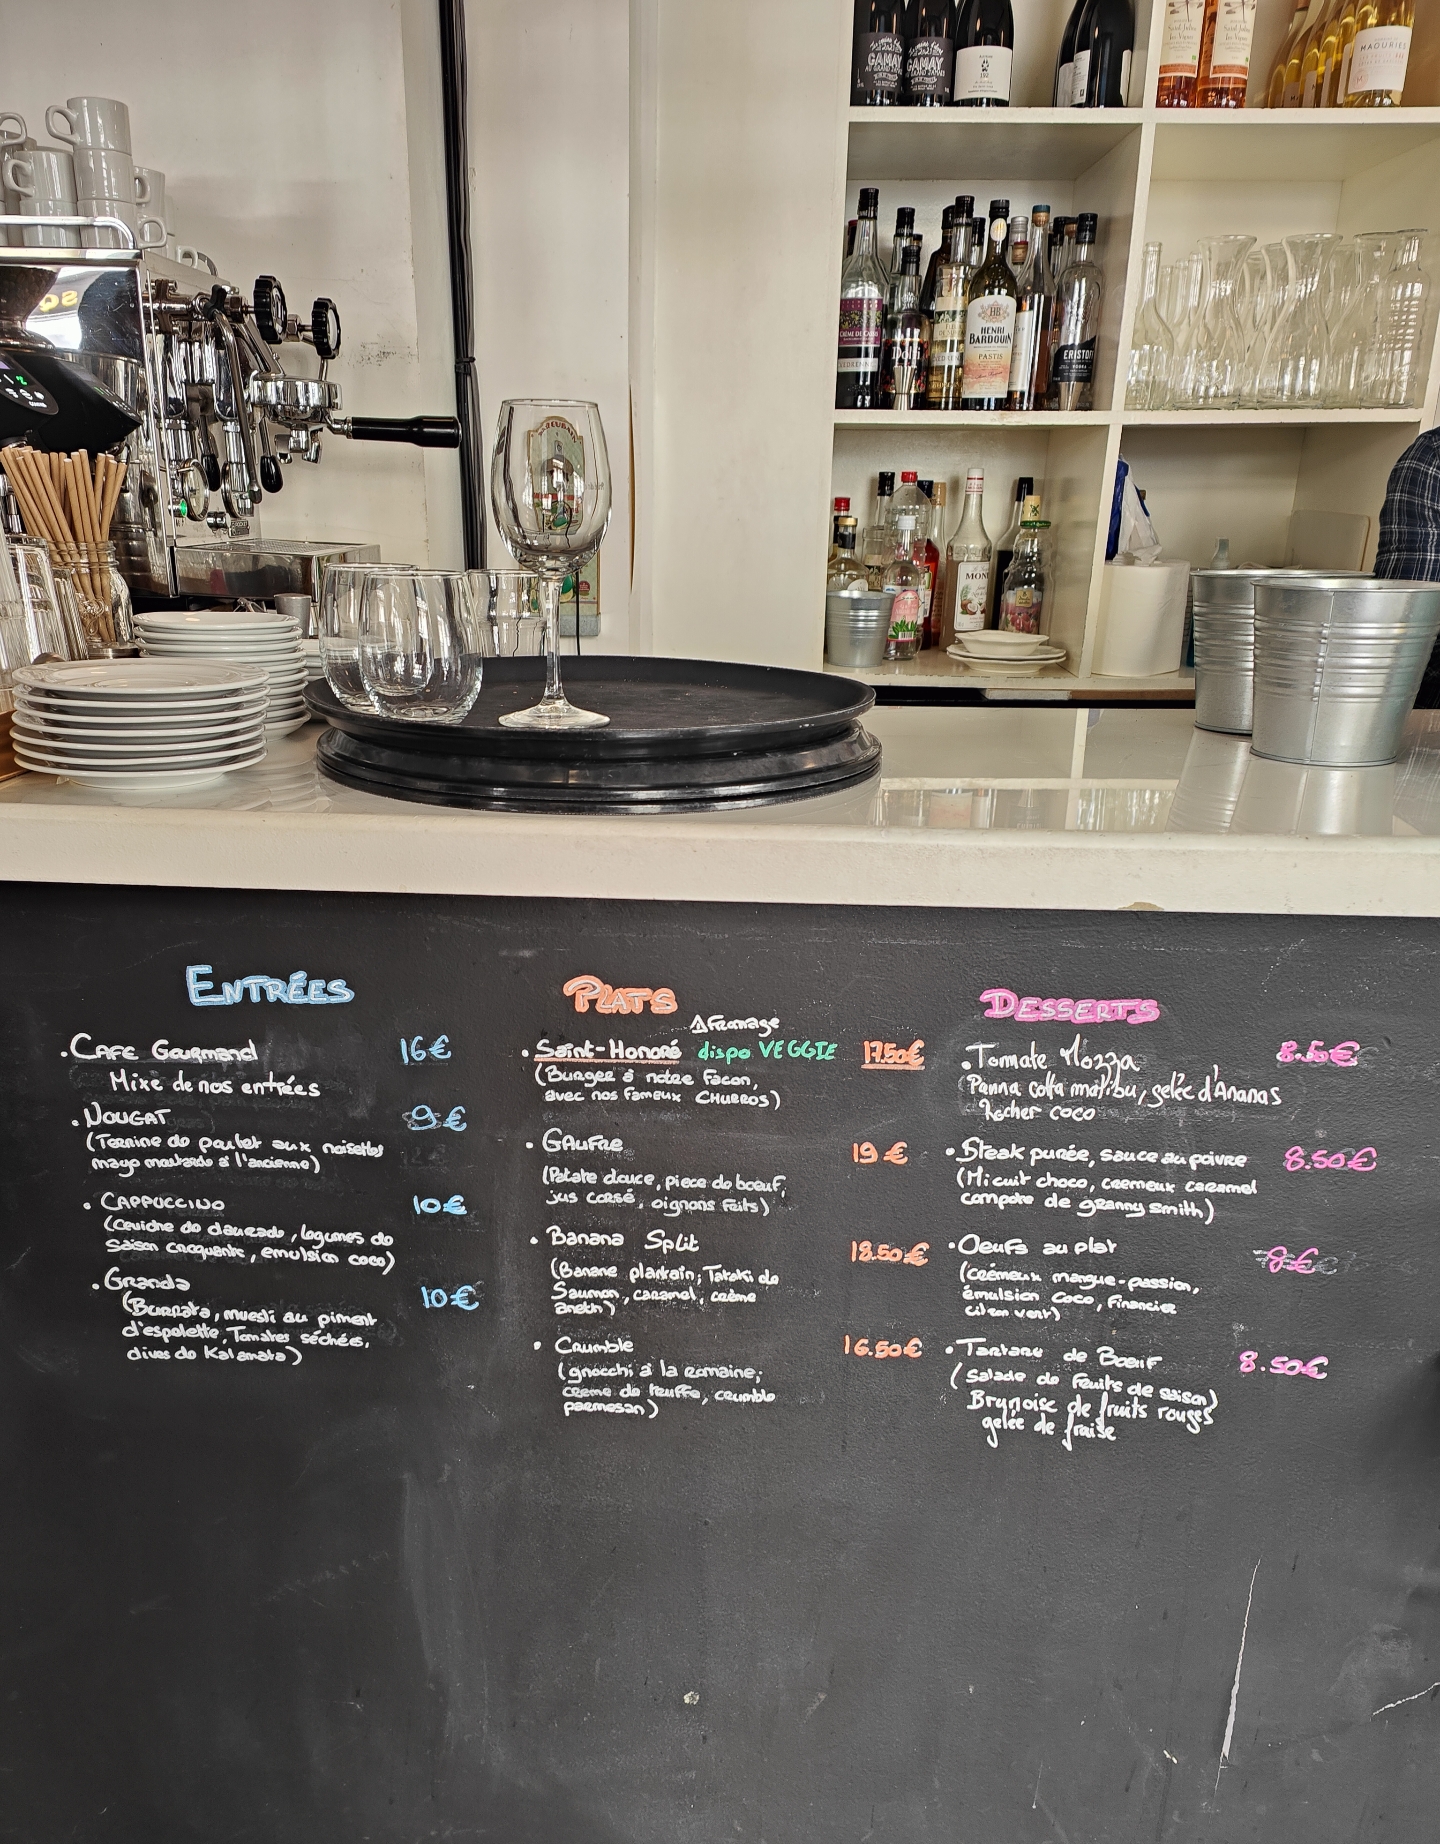 GAMAY
GAMAY
MAOURIES
CRÈME DE CASSIS
HENRI
BARDOUIN
PASTIS
ERISTOFF
VODKA
MONI
ENTRÉES
• CAFE Gourmand 16€
Mixe de nos entrées
• NOUGAT 9€
(Terrine de poulet aux noisettes
mayo moutarde à l'ancienne)
• CAPPUCCINO 10€
(Ceviche de daurade, legumes de
saison croquants, émulsion coco)
• Granola 10€
(Burrata, muesli au piment
d'espelette, Tomates séchées,
olives de Kalamata)
PLATS
⚠ Fromage
• Saint-Honoré dispo VEGGIE 17.50€
(Burger à notre façon,
avec nos fameux CHURROS)
• GAUFRE 19€
(Patate douce, piece de boeuf,
jus corsé, oignons frits)
• Banana Split 18.50€
(Banane plantain, Tataki de
Saumon, caramel, crème
aneth)
• Crumble 16.50€
(gnocchi à la romaine,
creme de truffe, crumble
parmesan)
DESSERTS
• Tomate Mozza 8.50€
Panna cotta malibu, gelée d'Ananas
Rocher coco
• Steak purée, sauce au poivre 8.50€
(Mi cuit choco, cremeux caramel
compote de granny smith)
• Oeufs au plat 8€
(crémeux mangue-passion,
émulsion coco, Financier
citron vert)
• Tartare de Boeuf 8.50€
(Salade de fruits de saison)
Brunoise de fruits rouges
gelée de fraise